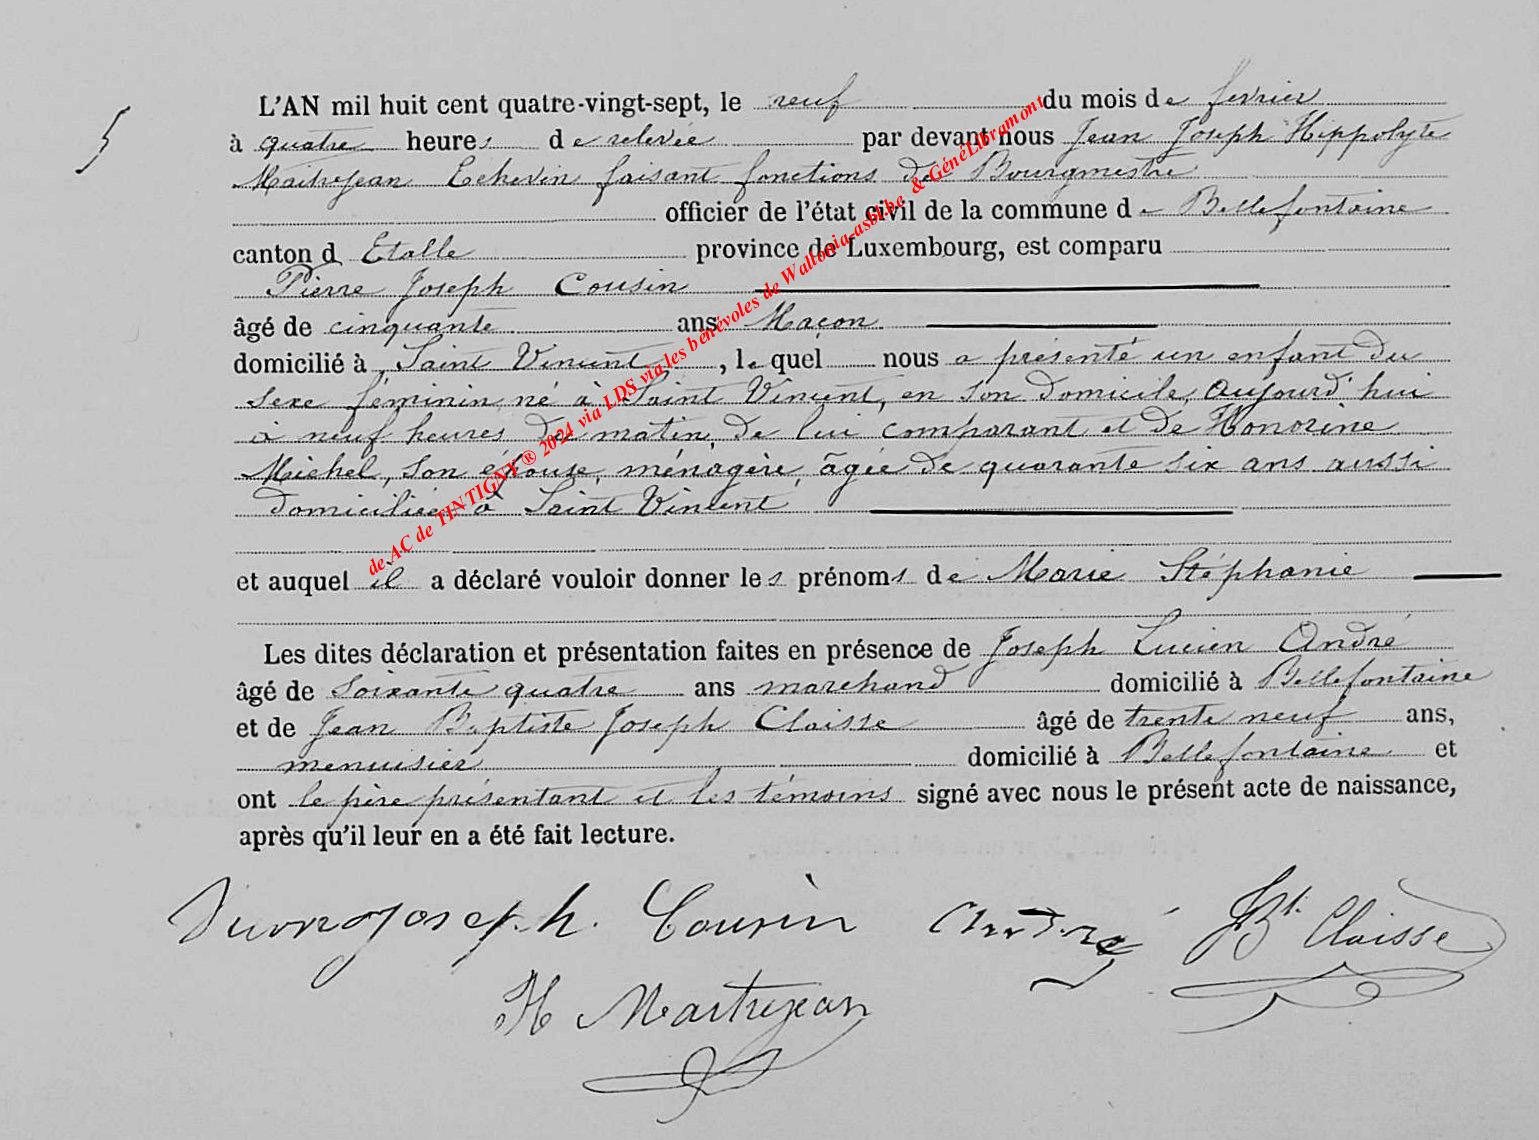 L'AN mil huit cent quatre-vingt-sept, le neuf du mois de fevrier
5
à quatre heures de relevée par devant nous Jean Joseph Hippolyte
Maitrejean Echevin faisant fonctions de Bourgmestre
officier de l'état civil de la commune de Bellefontaine
canton d Etalle province de Luxembourg, est comparu
Pierre Joseph Cousin
âgé de cinquante ans Maçon
domicilié à Saint Vincent, le quel nous a présenté un enfant du
sexe féminin, né à Saint Vincent, en son domicile, aujourd'hui
à neuf heures du matin, de lui comparant et de Honorine
Michel, son épouse, ménagère, âgée de quarante six ans aussi
domiciliée à Saint Vincent
et auquel il a déclaré vouloir donner les prénoms de Marie Stéphanie
Les dites déclaration et présentation faites en présence de Joseph Lucien André
âgé de soixante quatre ans marchand domicilié à Bellefontaine
et de Jean Baptiste Joseph Claisse âgé de trente neuf ans,
menuisier domicilié à Bellefontaine et
ont le père présentant et les témoins signé avec nous le présent acte de naissance,
après qu'il leur en a été fait lecture.
Pierre Joseph. Cousin André JBt. Claisse
H Maitrejean
de AC de TINTIGNY ® 2024 via LDS via les bénévoles de Wallonia-asbl.be & GénéLibramont